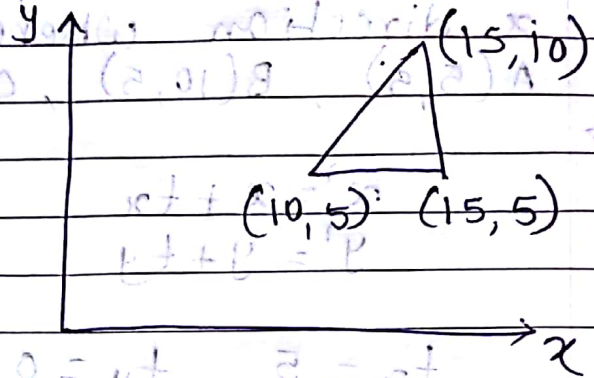 y
(15,10)
(10,5) (15,5)
x